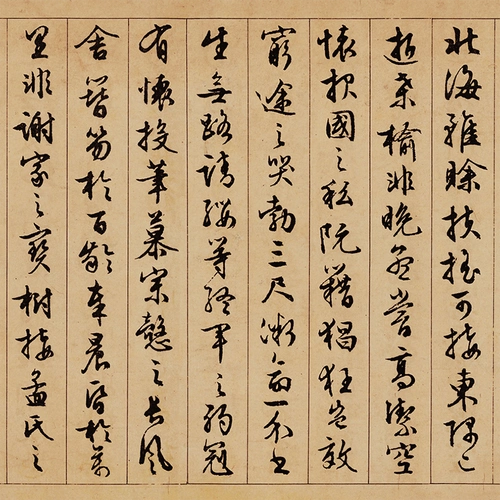 北海雖賒扶搖可接東隅已
逝桑榆非晚孟嘗高潔空
懷報國之私阮籍猖狂豈效
窮途之哭勃三尺微命一介書
生無路請纓等終軍之弱冠
有懷投筆慕宗愨之長風
舍簪笏於百齡奉晨昏於萬
里非謝家之寶樹接孟氏之